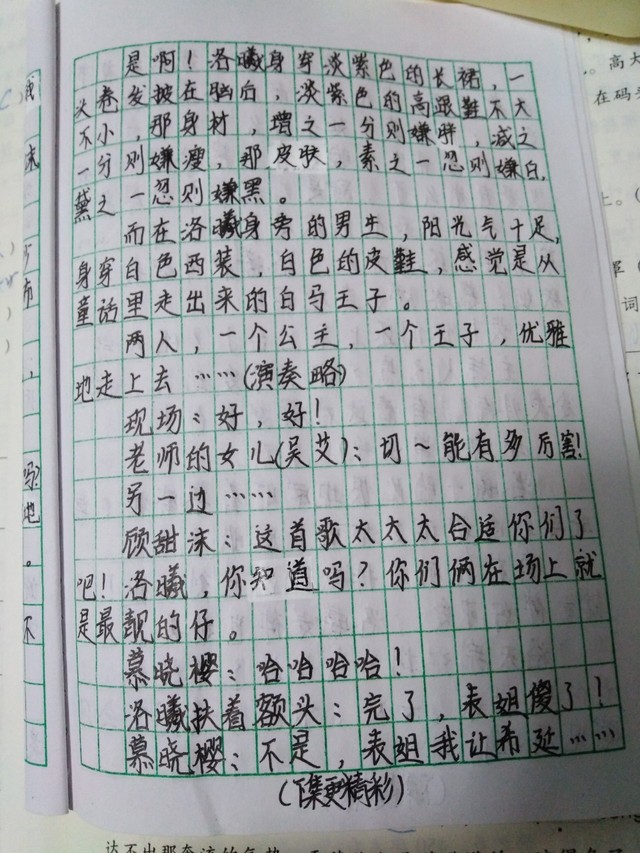 是啊！洛曦身穿淡紫色的长裙，一
头卷发披在脑后，淡紫色的高跟鞋不大
不小，那身材，增之一分则嫌胖，减之
一分则嫌瘦，那皮肤，素之一忍则嫌白，
黛之一忍则嫌黑。
而在洛曦身旁的男生，阳光气十足，
身穿白色西装，白色的皮鞋，感觉是从
童话里走出来的白马王子。
两人，一个公主，一个王子，优雅
地走上去……(演奏略)
现场：好，好！
老师的女儿(吴艾)：切～能有多厉害！
另一边……
顾甜沫：这首歌太太太合适你们了
吧！洛曦，你知道吗？你们俩在场上就
是最靓的仔。
慕晓樱：哈哈哈哈！
洛曦扶着额头：完了，表姐傻了！
慕晓樱：不是，表姐我让希延……
(下集更精彩)
我
沫
市
地
。
不
。高大
在码头
上。(
词